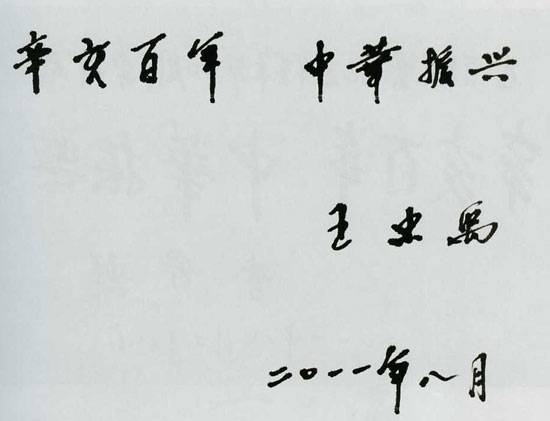 辛亥百年 中華振兴
王忠禹
二〇一一年八月